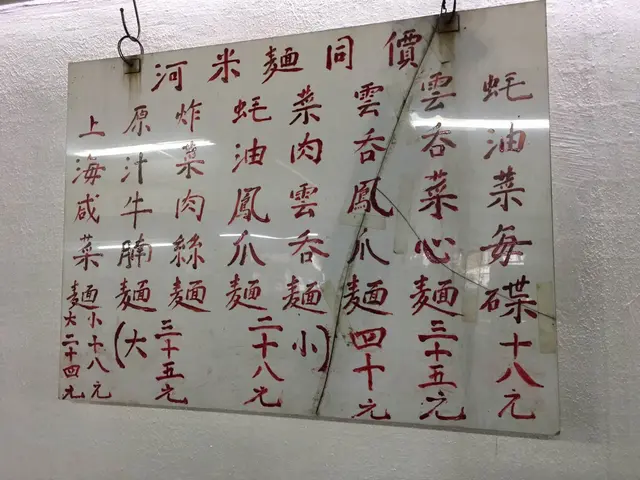 河米麵同價
蚝油菜每碟十八元
雲吞菜心麵三十五元
雲吞鳳爪麵四十元
菜肉雲吞麵小)
蚝油鳳爪麵二十八元
炸菜肉絲麵三十五元
原汁牛腩麵(大
上海咸菜
麵小十八元
麵大二十四元